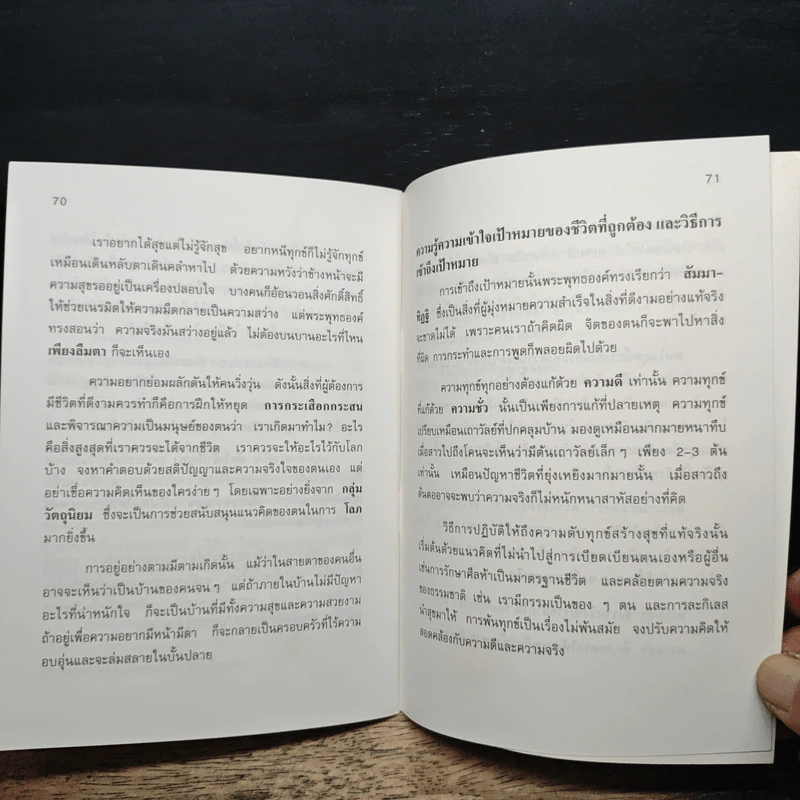 70
เราอยากได้สุขแต่ไม่รู้จักสุข อยากหนีทุกข์ก็ไม่รู้จักทุกข์
เหมือนเดินหลับตาเดินคลำหาไป ด้วยความหวังว่าข้างหน้าจะมี
ความสุขรออยู่เป็นเครื่องปลอบใจ บางคนก็อ้อนวอนสิ่งศักดิ์สิทธิ์
ให้ช่วยเนรมิตให้ความมืดกลายเป็นความสว่าง แต่พระพุทธองค์
ทรงสอนว่า ความจริงมันสว่างอยู่แล้ว ไม่ต้องบนบานอะไรที่ไหน
เพียงลืมตา ก็จะเห็นเอง
ความอยากย่อมผลักดันให้คนวิ่งวุ่น ดังนั้นสิ่งที่ผู้ต้องการ
มีชีวิตที่ดีงามควรทำก็คือการฝึกให้หยุด การกระเสือกกระสน
และพิจารณาความเป็นมนุษย์ของตนว่า เราเกิดมาทำไม? อะไร
คือสิ่งสูงสุดที่เราควรจะได้จากชีวิต เราควรจะให้อะไรไว้กับโลก
บ้าง จงหาคำตอบด้วยสติปัญญาและความจริงใจของตนเอง แต่
อย่าเชื่อความคิดเห็นของใครง่าย ๆ โดยเฉพาะอย่างยิ่งจาก กลุ่ม
วัตถุนิยม ซึ่งจะเป็นการช่วยสนับสนุนแนวคิดของตนในการ โลภ
มากยิ่งขึ้น
การอยู่อย่างตามมีตามเกิดนั้น แม้ว่าในสายตาของคนอื่น
อาจจะเห็นว่าเป็นบ้านของคนจน ๆ แต่ถ้าภายในบ้านไม่มีปัญหา
อะไรที่น่าหนักใจ ก็จะเป็นบ้านที่มีทั้งความสุขและความสวยงาม
ถ้าอยู่เพื่อความอยากมีหน้ามีตา ก็จะกลายเป็นครอบครัวที่ไร้ความ
อบอุ่นและจะล่มสลายในบั้นปลาย
71
ความรู้ความเข้าใจเป้าหมายของชีวิตที่ถูกต้อง และวิธีการ
เข้าถึงเป้าหมาย
การเข้าถึงเป้าหมายนั้นพระพุทธองค์ทรงเรียกว่า สัมมา-
ทิฏฐิ ซึ่งเป็นสิ่งที่ผู้มุ่งหมายความสำเร็จในสิ่งที่ดีงามอย่างแท้จริง
จะขาดไม่ได้ เพราะคนเราถ้าคิดผิด จิตของตนก็จะพาไปหาสิ่ง
ที่ผิด การกระทำและการพูดก็พลอยผิดไปด้วย
ความทุกข์ทุกอย่างต้องแก้ด้วย ความดี เท่านั้น ความทุกข์
ที่แก้ด้วย ความชั่ว นั้นเป็นเพียงการแก้ที่ปลายเหตุ ความทุกข์
เปรียบเหมือนเถาวัลย์ที่ปกคลุมบ้าน มองดูเหมือนมากมายหนาทึบ
เมื่อสาวไปถึงโคนจะเห็นว่ามีต้นเถาวัลย์เล็ก ๆ เพียง 2-3 ต้น
เท่านั้น เหมือนปัญหาชีวิตที่ยุ่งเหยิงมากมายนั้น เมื่อสาวถึง
ต้นตออาจจะพบว่าความจริงก็ไม่หนักหนาสาหัสอย่างที่คิด
วิธีการปฏิบัติให้ถึงความดับทุกข์สร้างสุขที่แท้จริงนั้น
เริ่มต้นด้วยแนวคิดที่ไม่นำไปสู่การเบียดเบียนตนเองหรือผู้อื่น
เช่นการรักษาศีลห้าเป็นมาตรฐานชีวิต และคล้อยตามความจริง
ของธรรมชาติ เช่น เรามีกรรมเป็นของ ๆ ตน และการละกิเลส
นำสุขมาให้ การพ้นทุกข์เป็นเรื่องไม่พ้นสมัย จงปรับความคิดให้
สอดคล้องกับความดีและความจริง